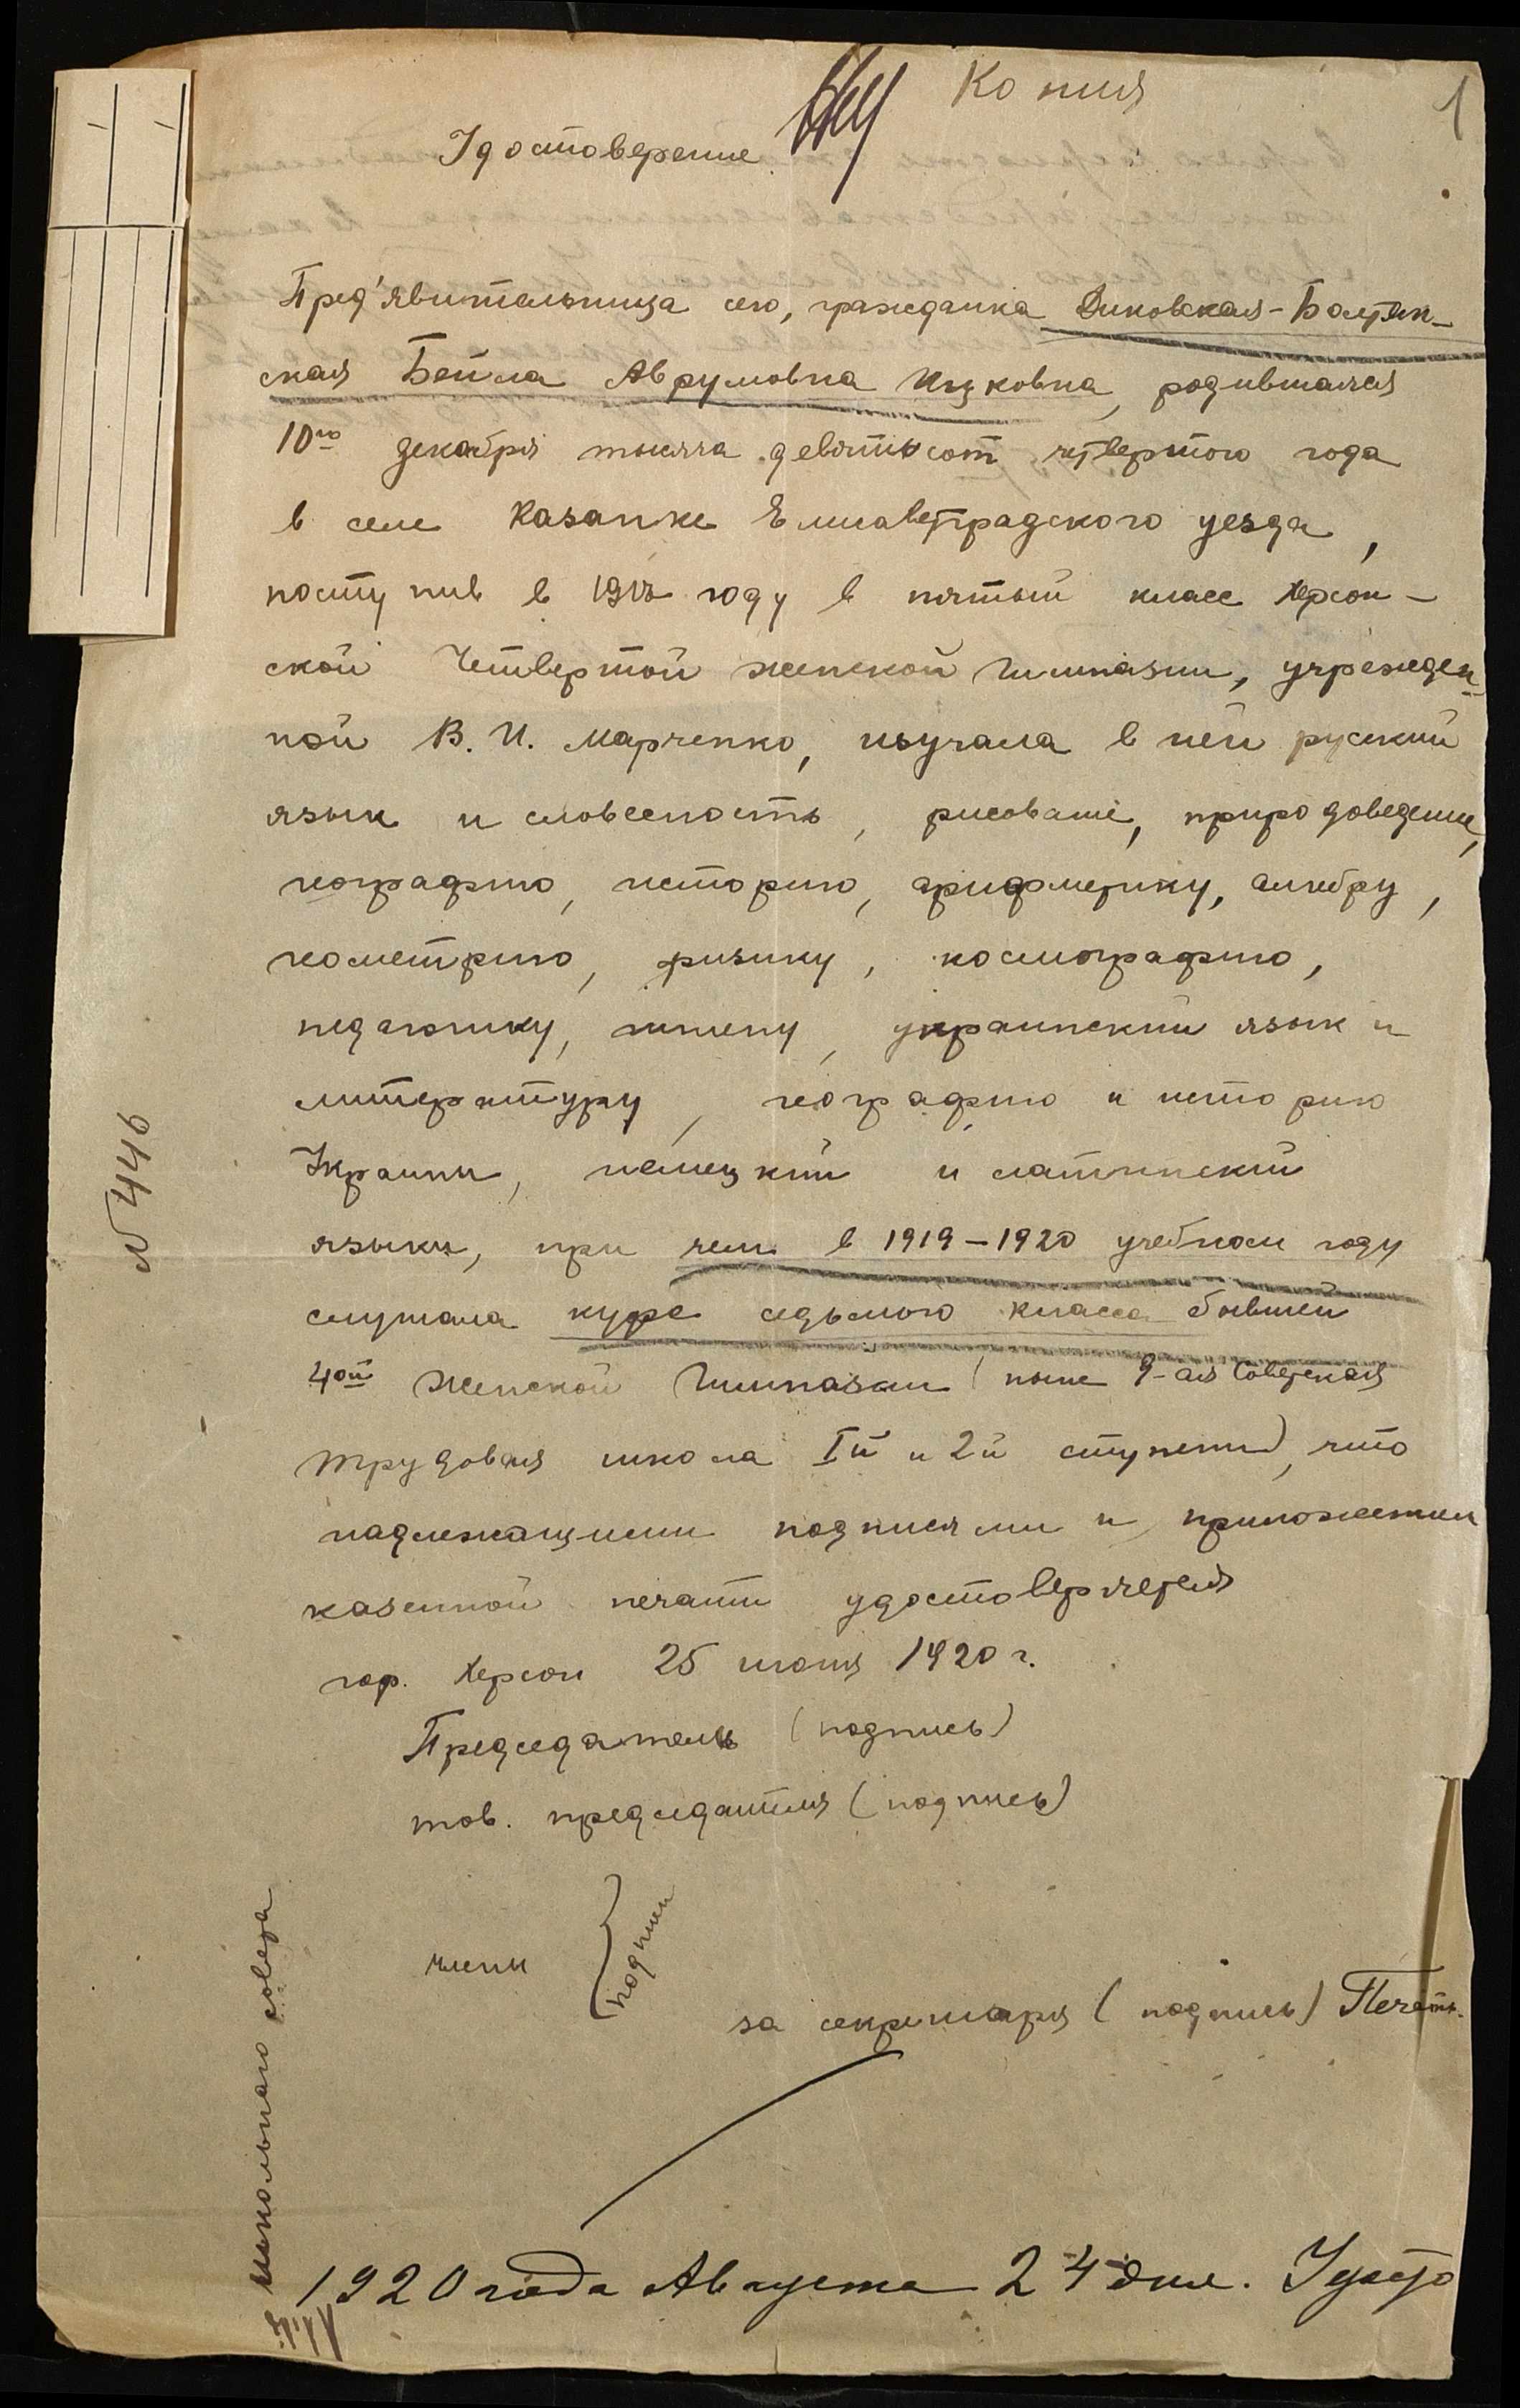 Копия
1
Удостоверение.
Пред'явительница сего, гражданка Диковская-Болтян-
ская Бейла Аврумовна Ицковна, родившаяся
10го декабря тысяча девятьсот четвертого года
в селе Казанке Елисаветградского уезда,
поступив в году в пятый класс Херсон-
ской Четвертой женской Гимназии, учрежден-
ной В. И. Марченко, изучала в ней русский
язык и словесность, рисование, природоведение,
географию, историю, арифметику, алгебру,
геометрию, физику, космографию,
педагогику, гигиену, украинский язык и
литературу, географию и историю
Украины, немецкий и латинский
языки, при чем в 1919-1920 учебном году
слушала курс седьмого класса бывшей
4ой Женской Гимназии (ныне 9-ая Советская
трудовая школа Iй и 2й ступени), что
надлежащими подписями и приложением
казенной печати удостоверяется
гор. Херсон 25 1920 г.
Председатель (подпись)
тов. председателя (подпись)
члены { подписи
за секретаря (подпись) Печать.
школьного совета
№ 446
1920 года Августа 24 дня. Удосто